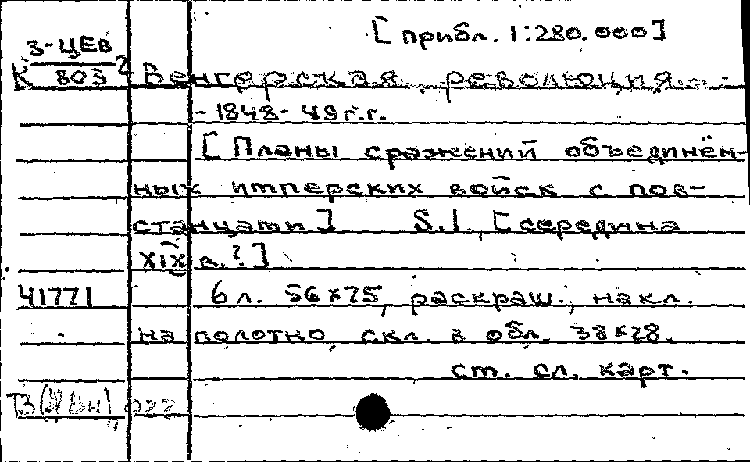 [прибл. 1:280.000]
3-ЦЕв
К 803² Венгерская революция
- 1848-49 г.г.
[Планы сражений объединён-
ных имперских войск с пов-
станцами] S.l., [середина
XIX в.?]
41771 6 л. 56x75, раскраш., накл.
на полотно, скл. в обл. 38x28.
ст. сл. карт.